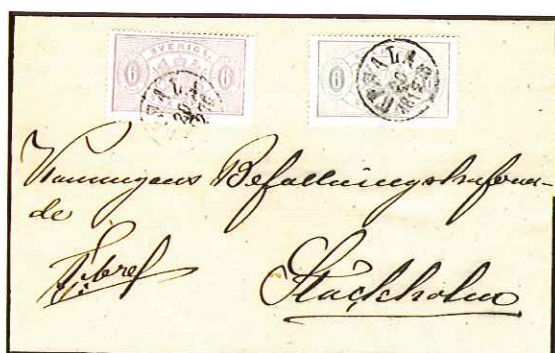 SVERIGE
6 6
UPSALA
6
UPSALA
20
Konungens Befallningshafvan-
de
Tj.bref
Stockholm